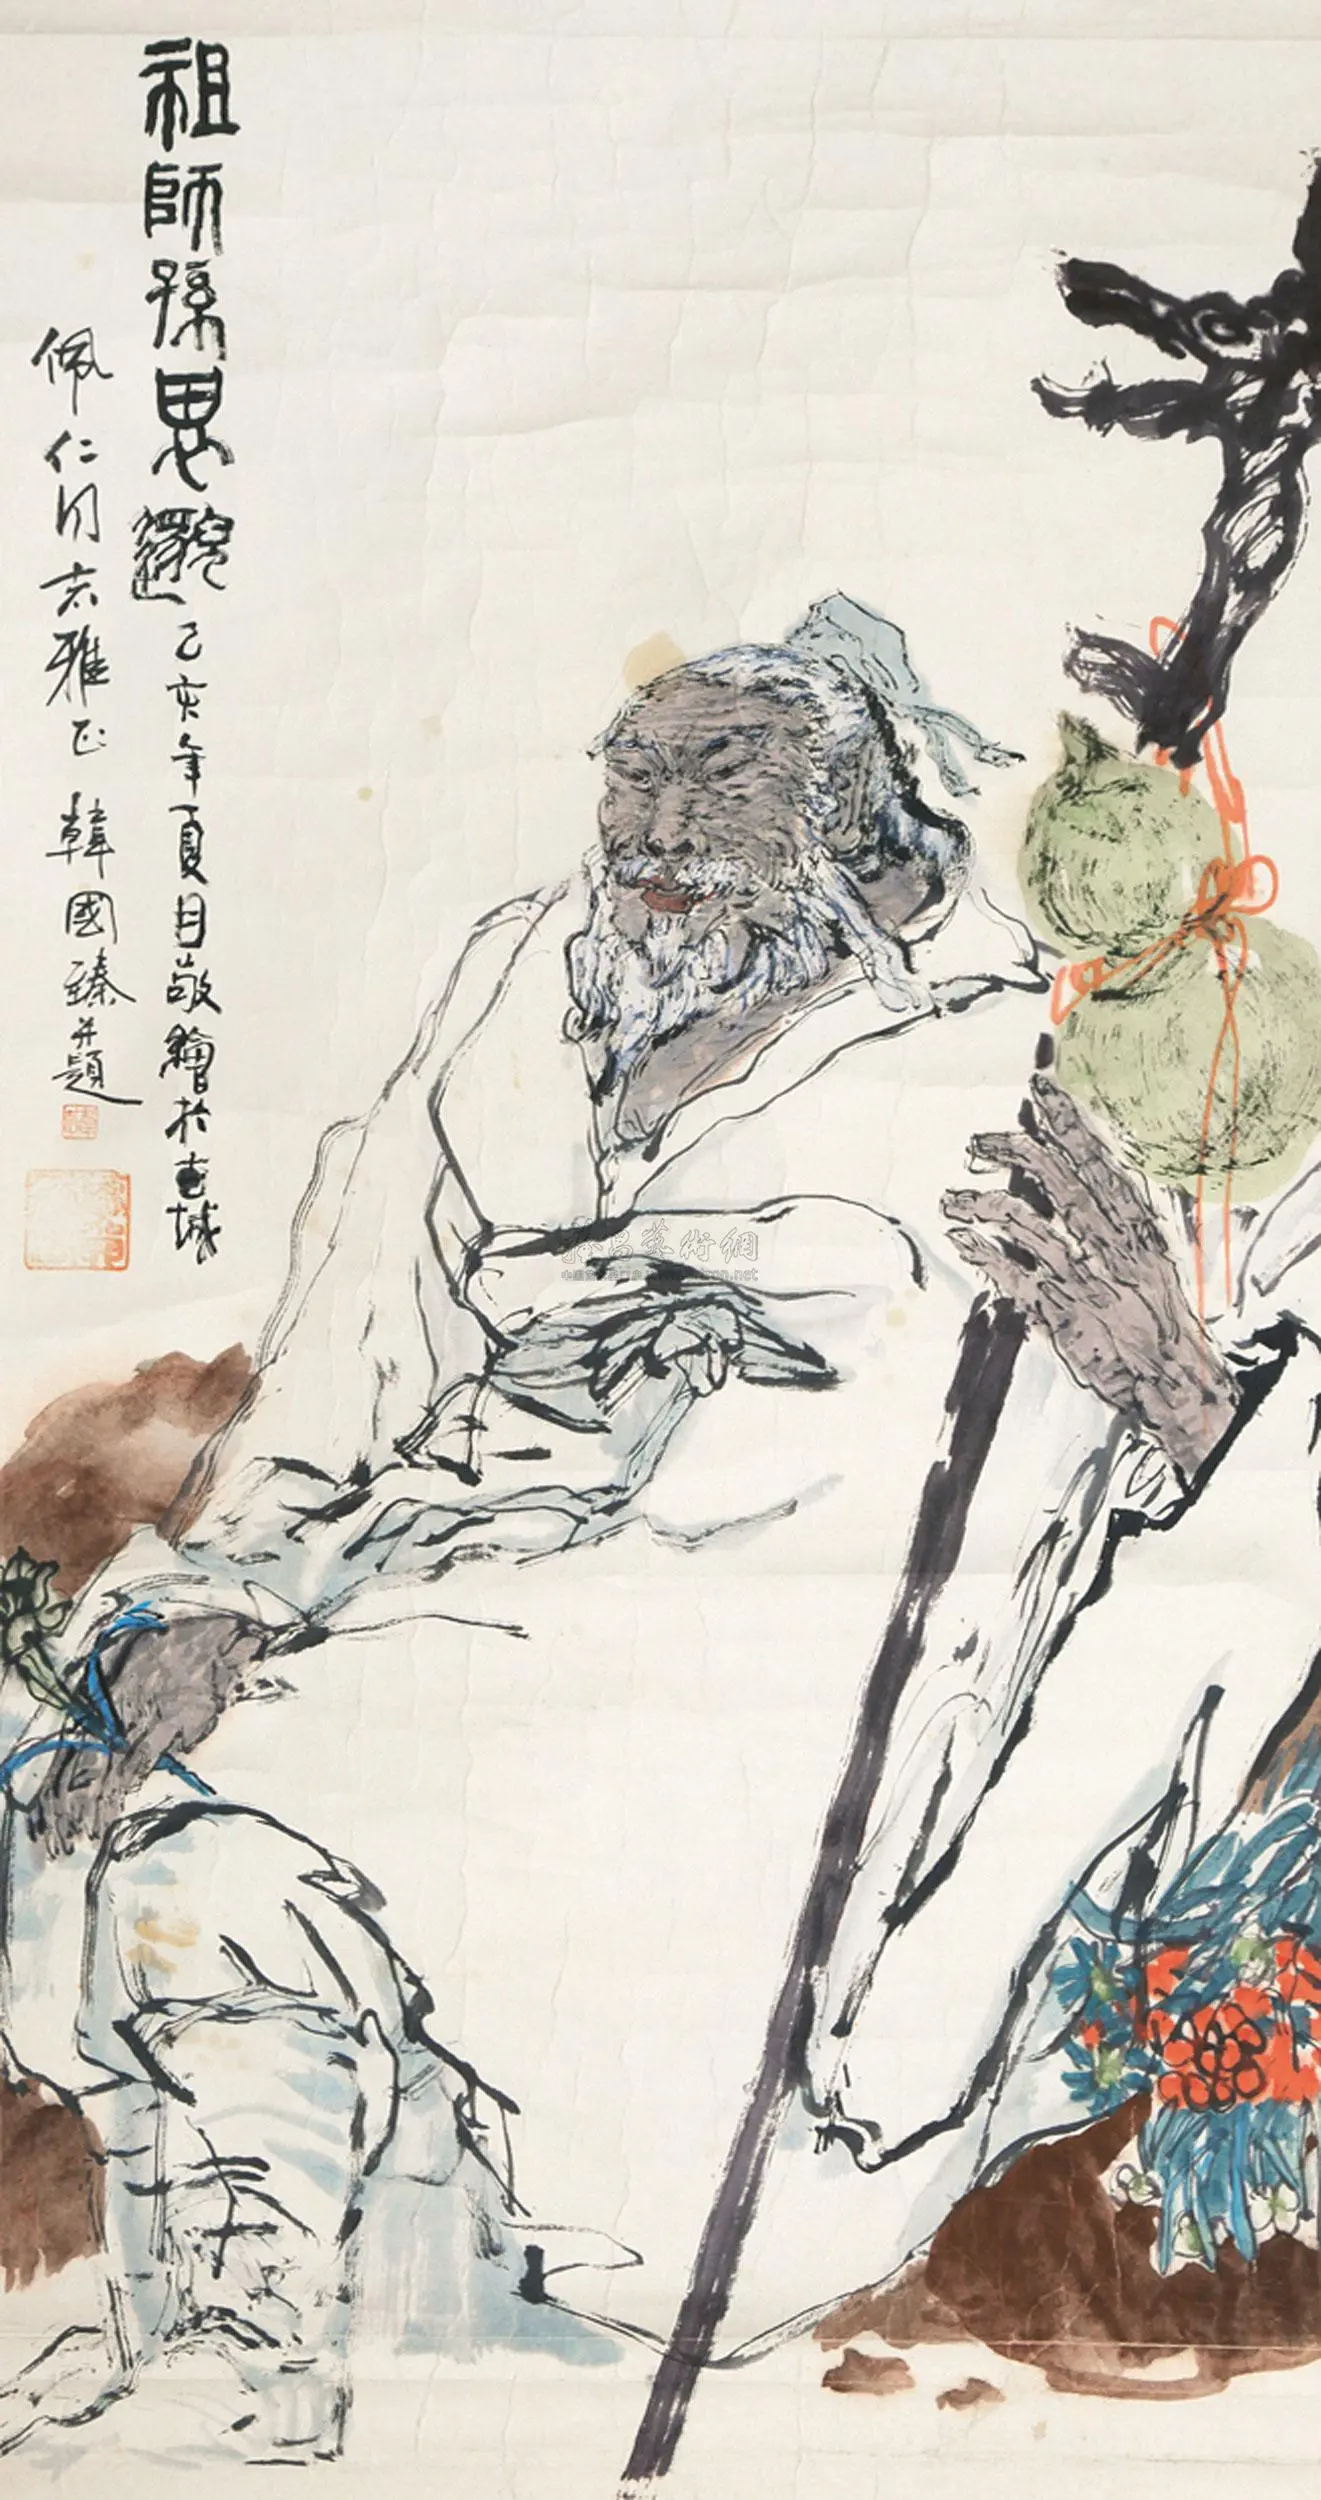 祖師孫思邈
乙亥年夏月敬繪於古城
佩仁同志雅正 韓國臻并題